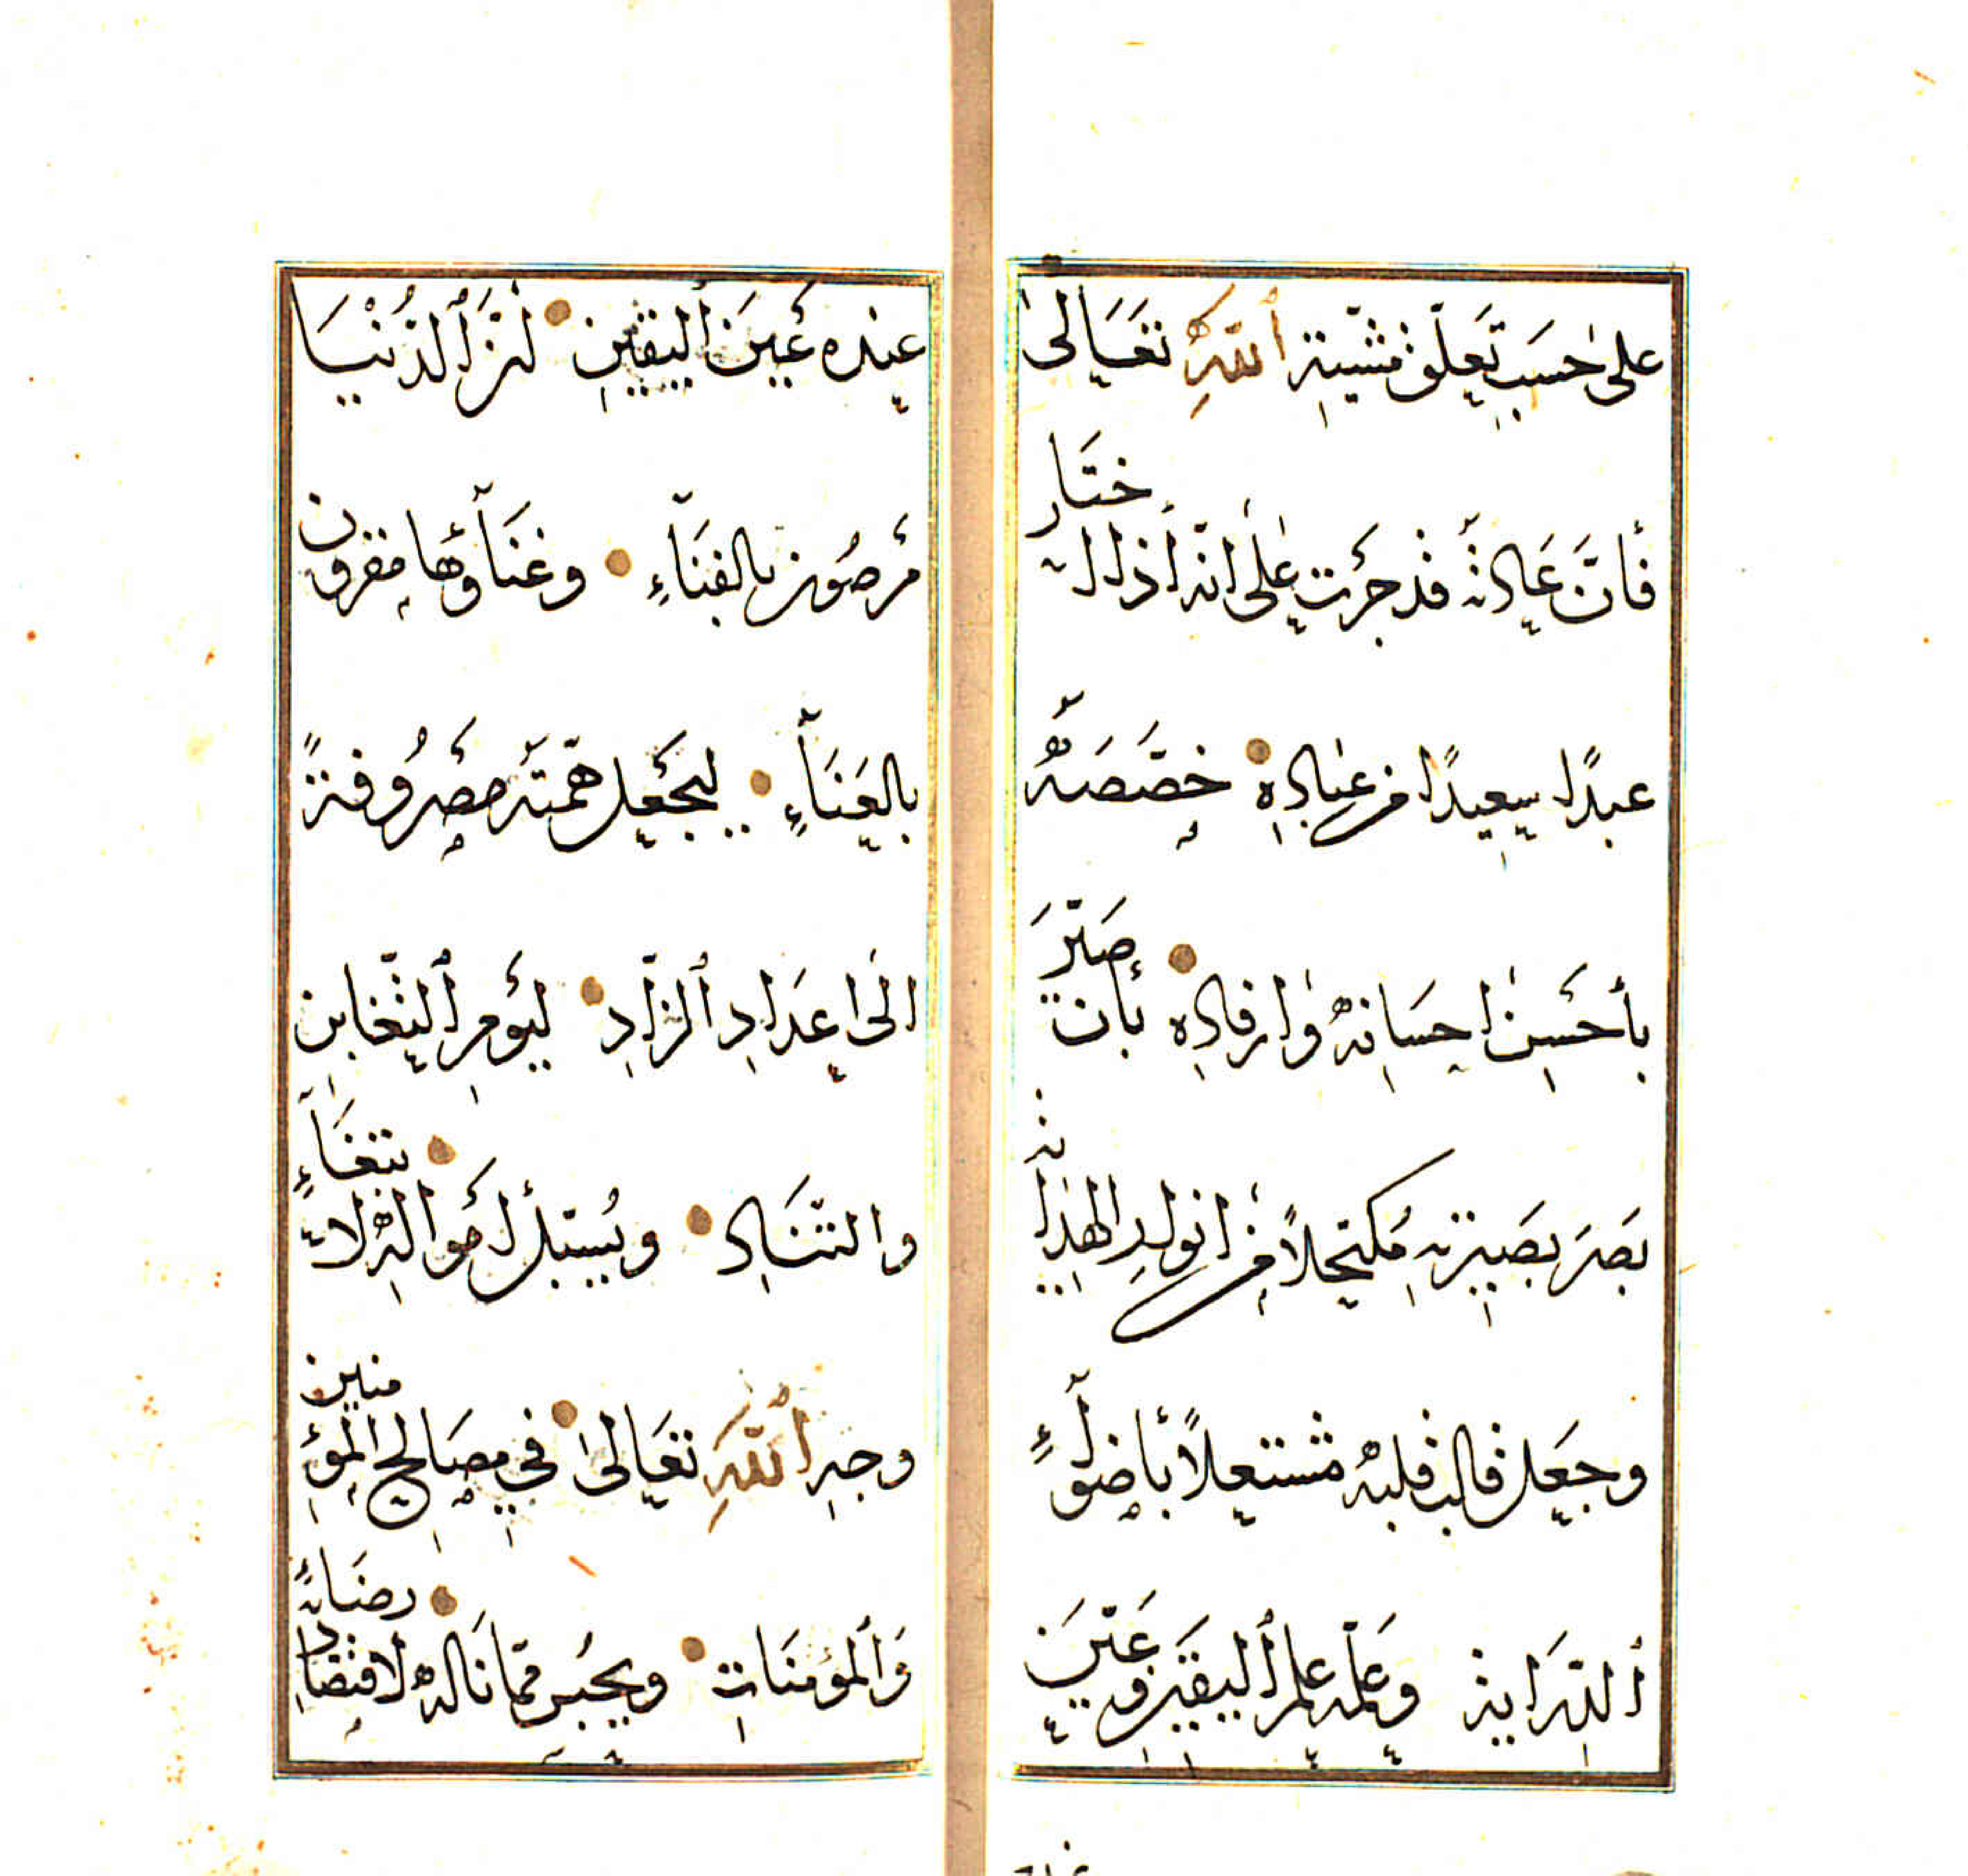 على حسب تعلق مشية الله تعالى
فان عادته قد جرت على انه اذا اختار
عبدا سعيدا من عباده خصصه
باحسن احسانه وارفاده بان صير
بصر بصيرته مكتحلا من انوار الهداية
وجعل قالب قلبه مشتعلا باضواء
الدراية وعلمه علم اليقين وعين
عنده عين اليقين ان الدنيا
مرصون بالفناء وغناؤها مقرون
بالعناء ليجعل همته مصروفة
الى اعداد الزاد ليوم التغابن
والتناد ويسبل امواله لابتغاء
وجه الله تعالى في مصالح المؤمنين
والمؤمنات ويحبس مما ناله لاقتصاد رضائه